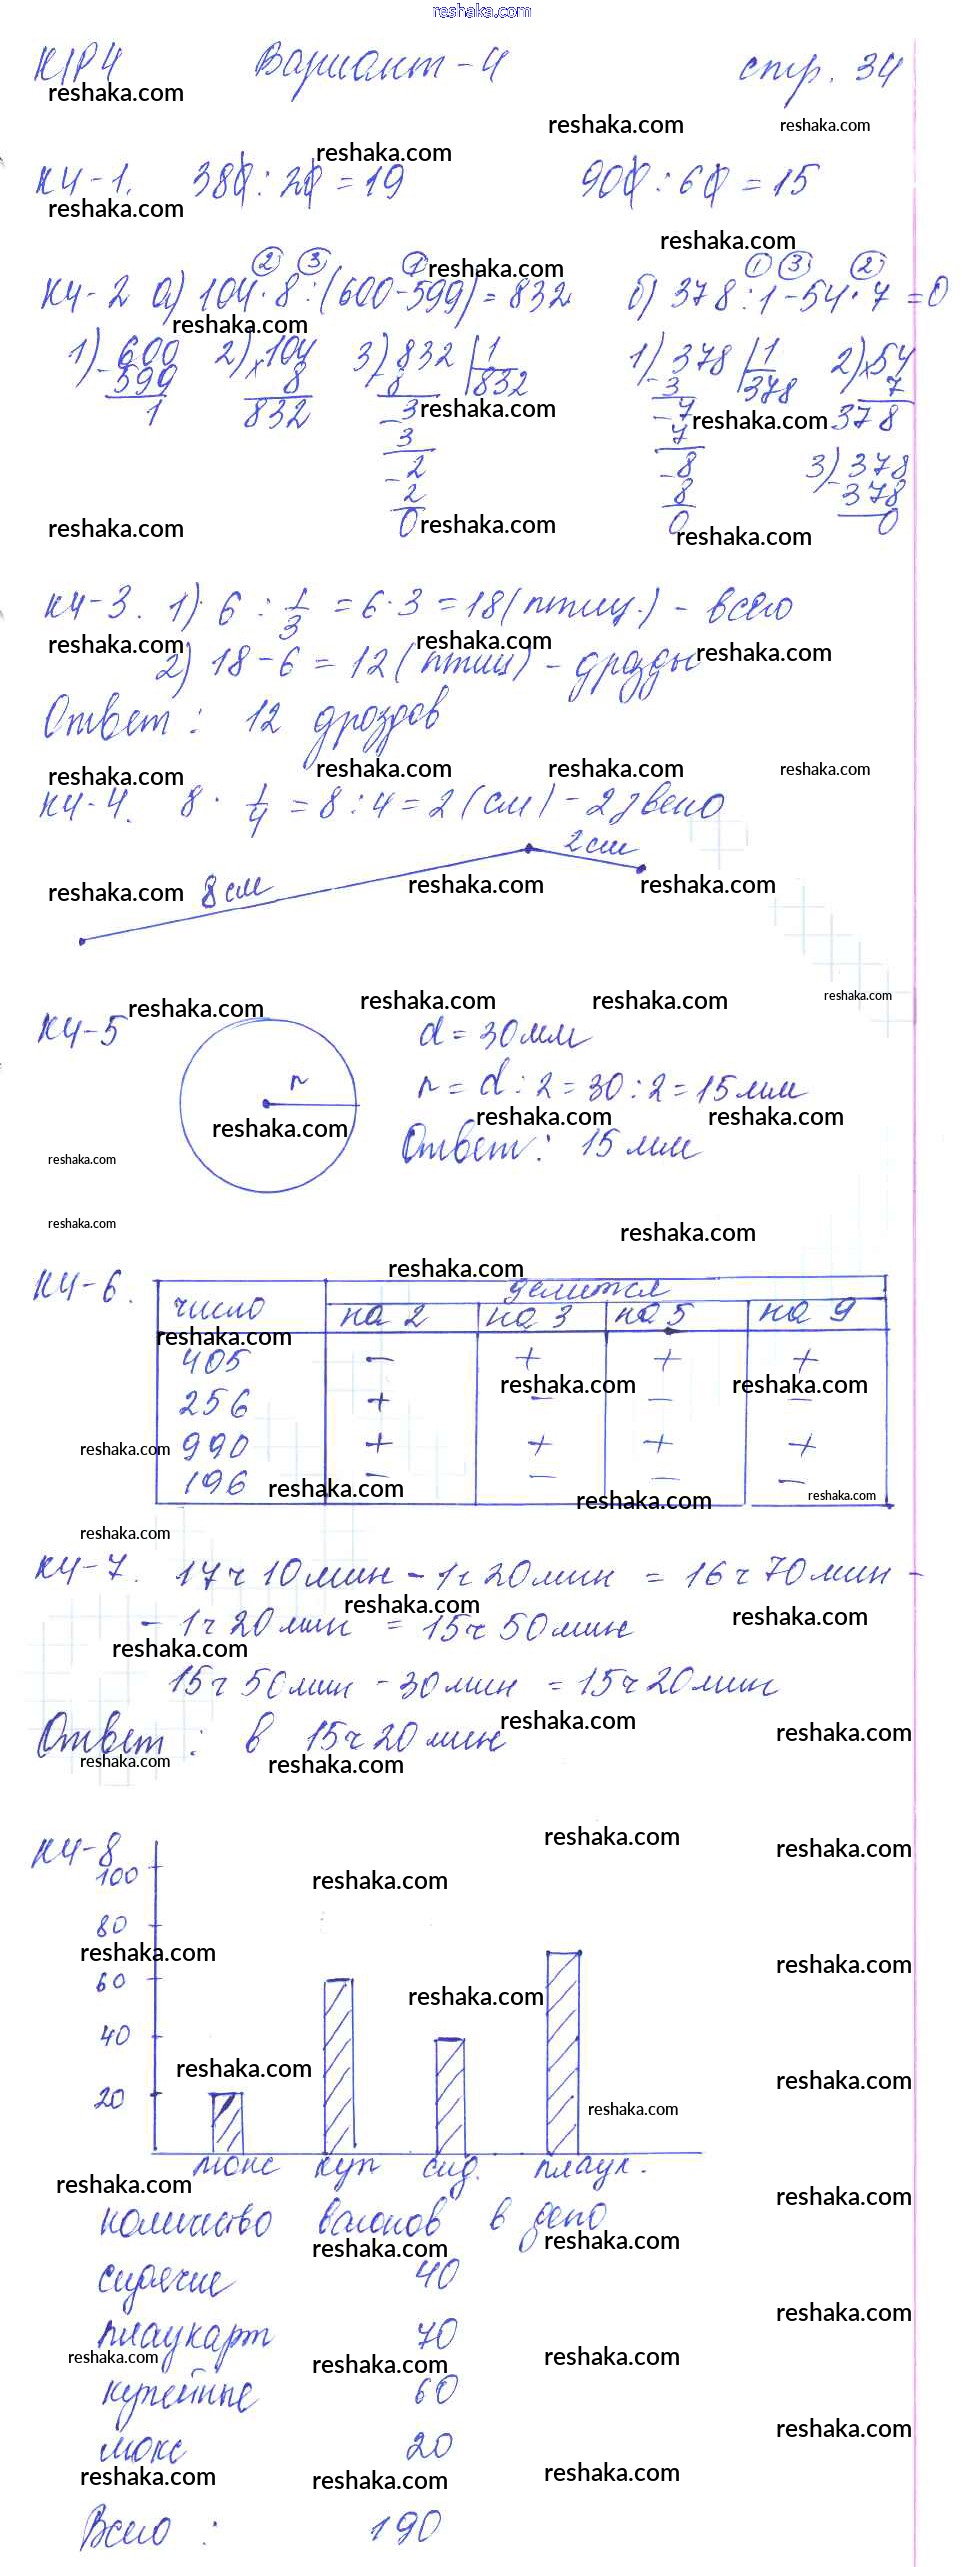 reshaka.com
К/Р4 Вариант-4 стр. 34
reshaka.com
reshaka.com reshaka.com
reshaka.com
К4-1. 380 : 20 = 19 900 : 60 = 15
reshaka.com
reshaka.com
2 3 1 reshaka.com 1 3 2
К4-2 а) 104·8:(600-599)=832 б) 378:1-54·7=0
reshaka.com
1) 600 2) 104 3) 832 1 1) 378 1 2) 54
- 599 × 8 8 832 - 3 378 × 7
1 832 - 3 reshaka.com - 7 reshaka.com 378
3 7 3) 378
- 2 - 8 - 378
2 8 0
reshaka.com 0 reshaka.com 0 reshaka.com
К4-3. 1) 6 : 1/3 = 6·3 = 18 (птиц.) - всего
reshaka.com reshaka.com reshaka.com
2) 18 - 6 = 12 (птиц) - дрозды
Ответ: 12 дроздов
reshaka.com reshaka.com reshaka.com reshaka.com
К4-4. 8 · 1/4 = 8 : 4 = 2 (см) - 2 звено
2см
reshaka.com 8 см reshaka.com reshaka.com
reshaka.com reshaka.com reshaka.com reshaka.com
К4-5 d = 30мм
r r = d : 2 = 30 : 2 = 15 мм
reshaka.com reshaka.com reshaka.com
Ответ: 15 мм
reshaka.com
reshaka.com reshaka.com
reshaka.com
К4-6. число делится
на 2 на 3 на 5 на 9
reshaka.com
405 - + + +
reshaka.com reshaka.com
256 + - - -
reshaka.com 990 + + + +
196 - - - -
reshaka.com reshaka.com reshaka.com
reshaka.com
К4-7. 17ч 10мин - 1ч 20мин = 16ч 70мин -
reshaka.com reshaka.com
- 1ч 20мин = 15ч 50мин
reshaka.com
15ч 50мин - 30мин = 15ч 20мин
reshaka.com reshaka.com
Ответ: в 15ч 20мин
reshaka.com reshaka.com
reshaka.com reshaka.com
К4-8
100 reshaka.com
80
reshaka.com reshaka.com
60 reshaka.com
40
reshaka.com reshaka.com
20 reshaka.com
мокс куп сид. плацк.
reshaka.com reshaka.com
количество вагонов в депо
reshaka.com reshaka.com
сидячие 40
reshaka.com
плацкарт 70
reshaka.com reshaka.com reshaka.com
купейные 60
reshaka.com
мокс 20
reshaka.com reshaka.com reshaka.com
Всего : 190